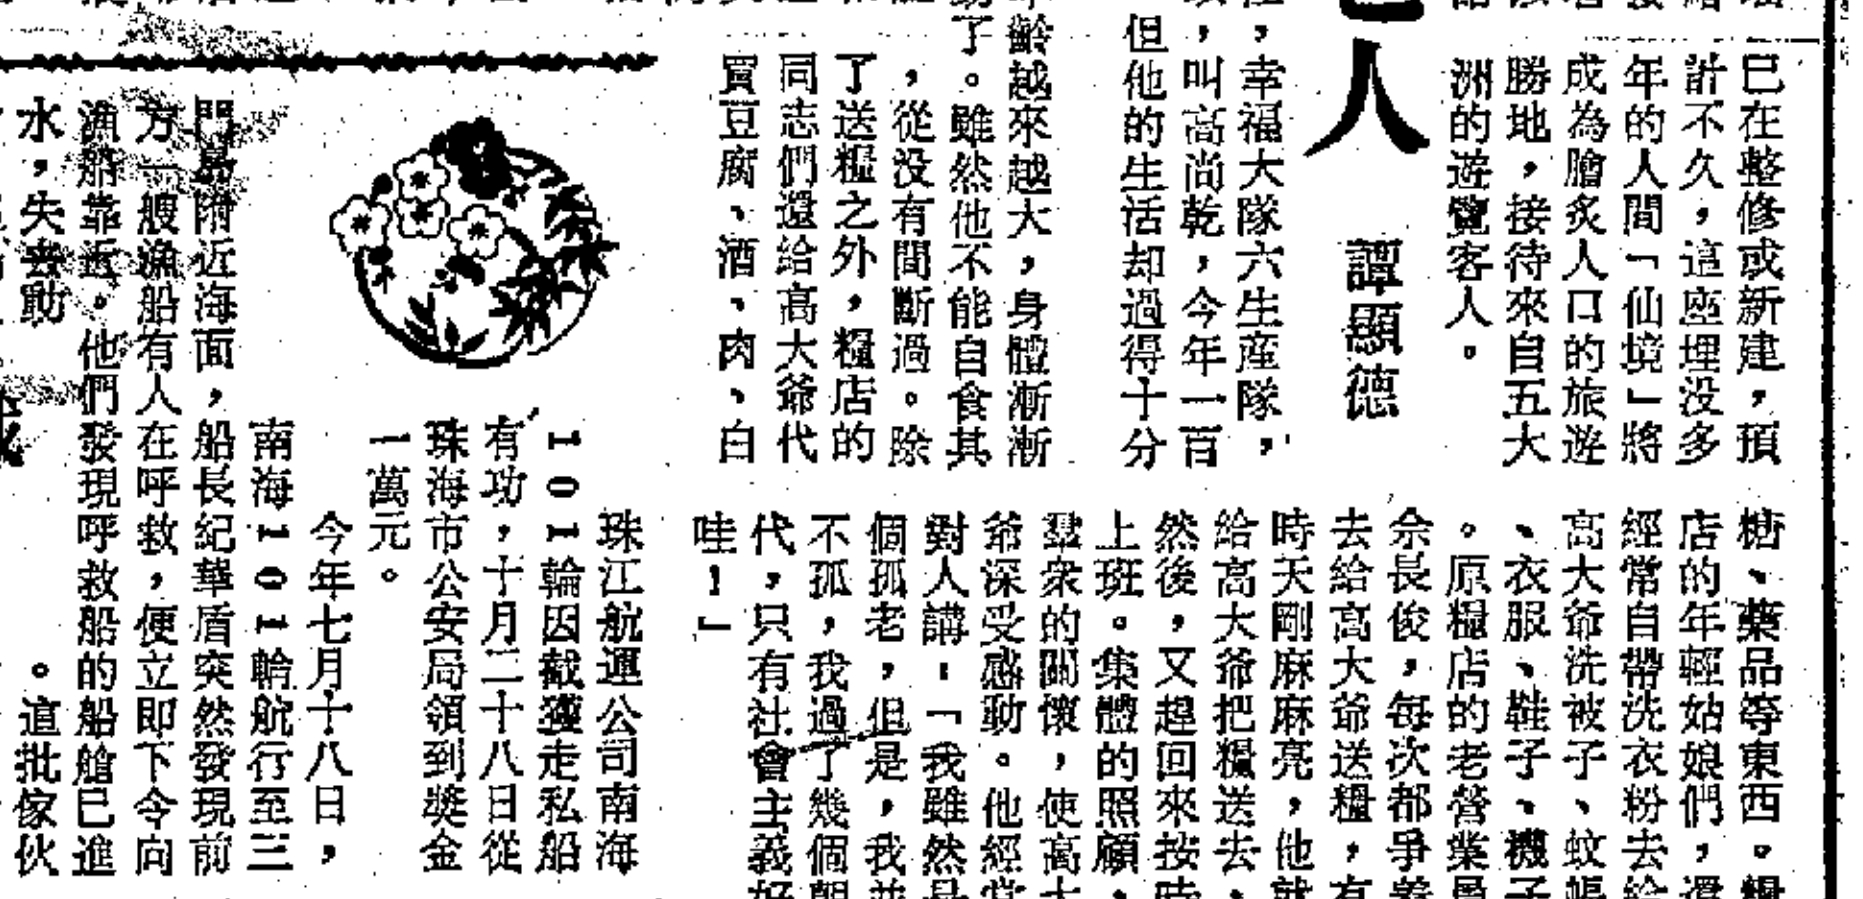 已在整修或新建，預
計不久，這座埋没多
年的人間「仙境」將
成為膾炙人口的旅遊
勝地，接待來自五大
洲的遊覽客人。
人
譚顯德
，幸福大隊六生産隊，
，叫高尚乾，今年一百
但他的生活却過得十分
齡越來越大，身體漸漸
了。雖然他不能自食其
，從没有間斷過。除
了送糧之外，糧店的
同志們還給高大爷代
買豆腐、酒、肉、白
糖、藥品等東西。糧
店的年輕姑娘們，還
經常自帶洗衣粉去給
高大爷洗被子、蚊帳
、衣服、鞋子、襪子
。原糧店的老營業員
余長俊，每次都爭着
去給高大爷送糧，有
時天剛麻麻亮，他就
給高大爷把糧送去，
然後，又趕回來按時
上班。集體的照顧，
羣衆的關懷，使高大
爷深受感動。他經常
對人講：「我雖然是
個孤老，但是，我並
不孤，我過了幾個朝
代，只有社會主義好
哇！」
珠江航運公司南海
101輪因截獲走私船
有功，十月二十八日從
珠海市公安局領到獎金
一萬元。
今年七月十八日，
南海101輪航行至三
門島附近海面，船長紀華盾突然發現前
方一艘漁船有人在呼救，便立即下令向
漁船靠近。他們發現呼救船的船艙已進
水，失去動
。這批傢伙